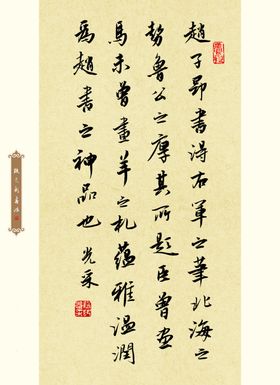 趙子昂書得右軍之筆北海之
勢魯公之厚其所題臣曾畫
馬未曾畫羊之札蘊雅温潤
爲趙書之神品也 光采